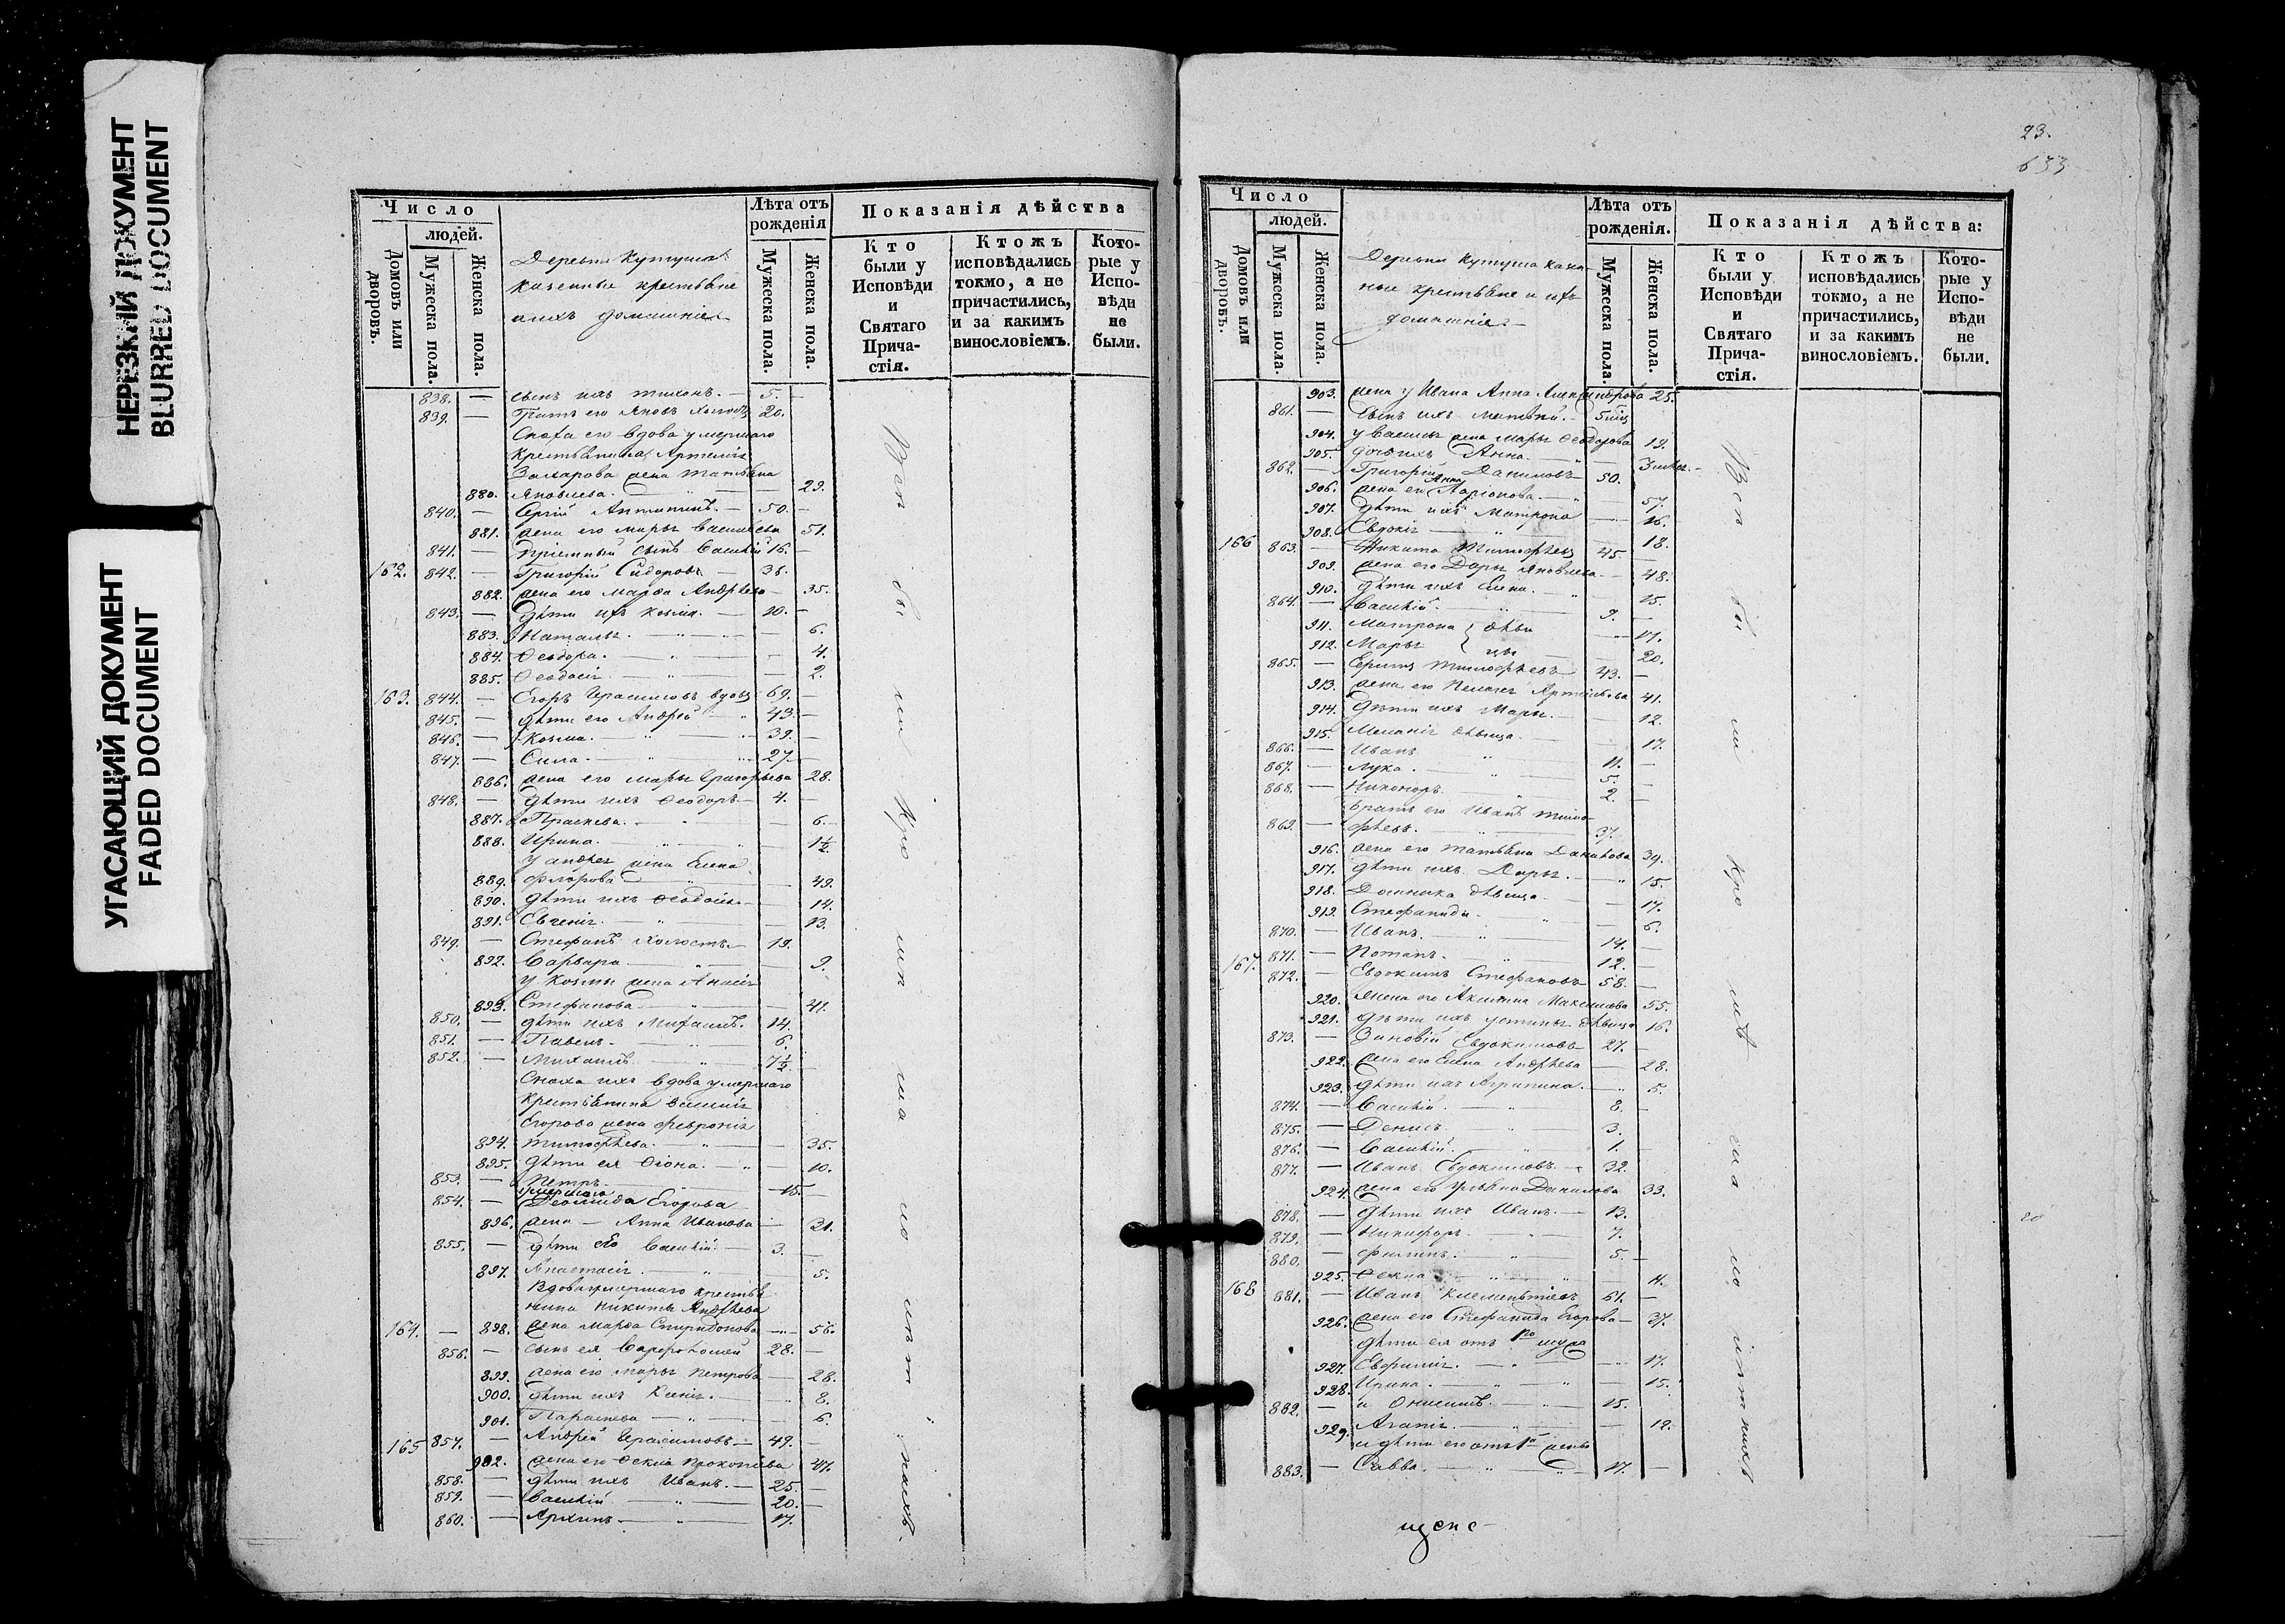 НЕРЕЗКИЙ ДОКУМЕНТ
BLURRED DOCUMENT
УГАСАЮЩИЙ ДОКУМЕНТ
FADED DOCUMENT
Число
людей.
Домовъ или дворовъ.
Мужеска пола.
Женска пола.
Деревни Кутуша
казенные крестьяне
и ихъ домашніе
Лѣта отъ рожденія
Мужеска пола.
Женска пола.
Показанія дѣйства
Кто были у Исповѣди и Святаго Причастія.
Ктожъ исповѣдались токмо, а не причастились, и за какимъ винословіемъ.
Которые у Исповѣди не были.
838. — сынъ ихъ Тихонъ. — 5. —
839. — Братъ его Яковъ холостъ 20.
Сноха его вдова умершаго
крестьянина Артемія
Захарова жена Татьяна
880. Яковлева. — 29.
840. — Сергій Антиповъ. — 50. —
881. жена его Марья Васильева 51.
841. — Пріемный сынъ Василій 16. —
162. 842. — Григорій Сидоровъ — 36.
882. жена его Марѳа Андрѣева — 35.
843. — Дѣти ихъ Козма. — 10. —
883. Наталья. — 6.
884. Ѳеодора. — 4.
885. Ѳеодосія. — 2.
163. 844. — Егоръ Герасимовъ вдовъ 69. —
845. — Дѣти его Андрей — 43. —
846. — Козма. — 39. —
847. — Сила. — 27. —
886. жена его Марья Григорьева 28.
848. — Дѣти ихъ Ѳеодоръ — 4. —
887. Праскева. — 6.
888. Ирина. — 1½.
У Андрея жена Елена
889. Флорова — 49.
890. Дѣти ихъ Ѳеодосья — 14.
891. Евгенія. — 13.
849. — Стефанъ холостъ. — 19. —
892. Варвара — 9.
У Козмы жена Анасія
893. Стефанова — 41.
850. — Дѣти ихъ Михаилъ. 14.
851. — Павелъ. — 6.
852. — Михаилъ — 7½.
Сноха ихъ вдова умершаго
крестьянина Василія
Егорова жена Февронія
894. Тимофѣева. — 35.
895. Дѣти ея Ѳіона. — 10.
853. — Петръ. — 15. —
умершаго
854. — Леонида Егорова
896. жена — Анна Иванова — 31.
855. — Дѣти его Василій — 3. —
897. Анастасія. — 5.
Вдова умершаго крестья-
нина Никиты Андрѣева
164. — 898. жена Марѳа Спиридонова — 56.
856. — сынъ ея Варфоломей 28. —
899. жена его Марья Петрова — 28.
900. Дѣти ихъ Ксенія. — 8.
901. Параскева — 6.
165 857. — Андрей Герасимовъ — 49. —
902. жена его Ѳекла Прокопьева 47.
858. — Дѣти ихъ Иванъ. — 25. —
859. — Василій — 20. —
860. — Архипъ. — 17.
23.
633
Число
людей.
Домовъ или дворовъ.
Мужеска пола.
Женска пола.
Деревни Кутуша казен-
ные крестьяне и ихъ
домашніе
Лѣта отъ рожденія.
Мужеска пола.
Женска пола.
Показанія дѣйства:
Кто были у Исповѣди и Святаго Причастія.
Ктожъ исповѣдались токмо, а не причастились, и за какимъ винословіемъ.
Которые у Исповѣди не были.
903. жена у Ивана Анна Александрова 25.
861. — сынъ ихъ Матвѣй. — 5 мѣц
904. у Василья жена Марья Ѳеодорова 19.
905. дочь ихъ Анна. —
862. — Григорій Даниловъ 50.
906. жена его Анна Ларіонова. — 57.
907. Дѣти ихъ Матрона — 16.
908. Евдокія — 18.
166 863. — Никита Тимофѣевъ 45. —
909. жена его Дарья Яковлева. — 48.
910. Дѣти ихъ Елена. — 15.
864. — Василій. — 9. —
911. Матрона } дѣви — 17.
912. Марья } цы — 20.
865. — Ефимъ Тимофѣевъ 43. —
913. жена его Пелагея Артемьева 41.
914. Дѣти ихъ Марья. — 12.
915. Меланія дѣвица. — 17.
866. — Иванъ — 11. —
867. — Лука. — 5. —
868. — Никоноръ. — 2. —
Братъ его Иванъ Тимо-
869. — фѣевъ. — 37.
916. жена его Татьяна Данилова 39.
917. Дѣти ихъ Дарья. — 15.
918. Домника дѣвица. — 17.
919. Стефанида. — 6.
870. — Иванъ. — 14. —
871. — Потапъ. — 12. —
167. 872. — Евдокимъ Стефановъ 58. —
920. Жена его Акилина Максимова 55.
921. Дѣти ихъ Устинья дѣвица 16.
873. — Зиновій Евдокимовъ 27. —
922. жена его Елена Андрѣева — 28.
923. Дѣти ихъ Агрипина. — 5.
874. — Василій. — 8. —
875. — Денисъ. — 3.
876. — Василій. — 1. —
877. — Иванъ Евдокимовъ. — 32.
924. жена его Ульяна Данилова 33.
878. — Дѣти ихъ Иванъ. — 13.
879. — Никифоръ. — 7.
880. — Филипъ. — 5. —
925. Ѳекла — 11.
168 881. — Иванъ Клементіевъ 61. —
926. жена его Стефанида Егорова — 37.
Дѣти ея отъ 1го мужа
927. Евфимія. — 17.
928. Ирина. — 15.
882. — и Онисимъ. — 15.
929. Агапія. — 12.
и дѣти его отъ 1й жены
883. — Савва. — 17. —